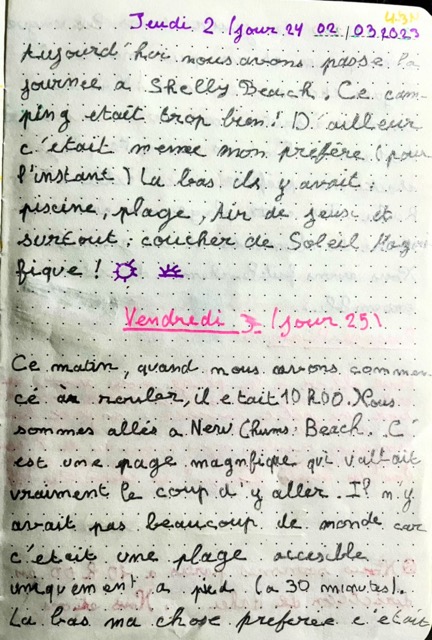 Jeudi 2 /jour 24 02/03.2023
Aujourd'hui nous avons passé la
journée a Shelly Beach. Ce cam-
ping etait trop bien! D'ailleur
c'était meme mon préféré (pour
l'instant) La bas ils y avait :
piscine, plage, Air de jeux et
surtout ; coucher de Soleil Mag
fique !
Vendredi 3 /jour 25)
Ce matin, quand nous avons commen-
cé à rouler, il etait 10 h00. Nous
sommes allés a New Chums Beach. C'
est une page magnfique qui vallait
vraiment le coup d'y aller. Il n'y
avait pas beaucoup de monde car
c'était une plage accesible
uniquement a pied (a 30 minutes).
La bas ma chose preferee c'etait